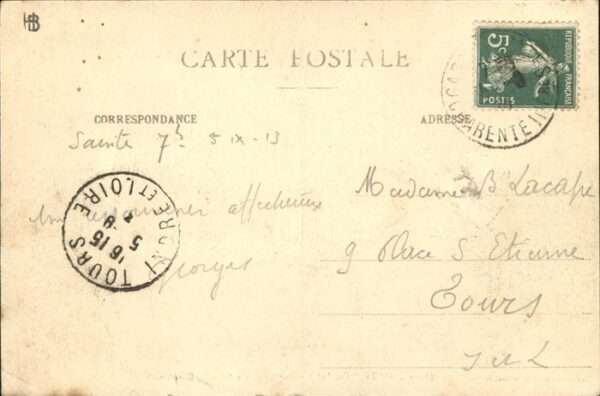 HB
CARTE POSTALE
5c
REPUBLIQUE FRANÇAISE
POSTES
CHARENTE INF
CORRESPONDANCE
ADRESSE
Sainte 7h 5 IX-13
affectueux
Georges
TOURS
INDRE ET LOIRE
16 15
5 - 9
Madame B Lacape
9 Place S Etienne
Tours
I et L